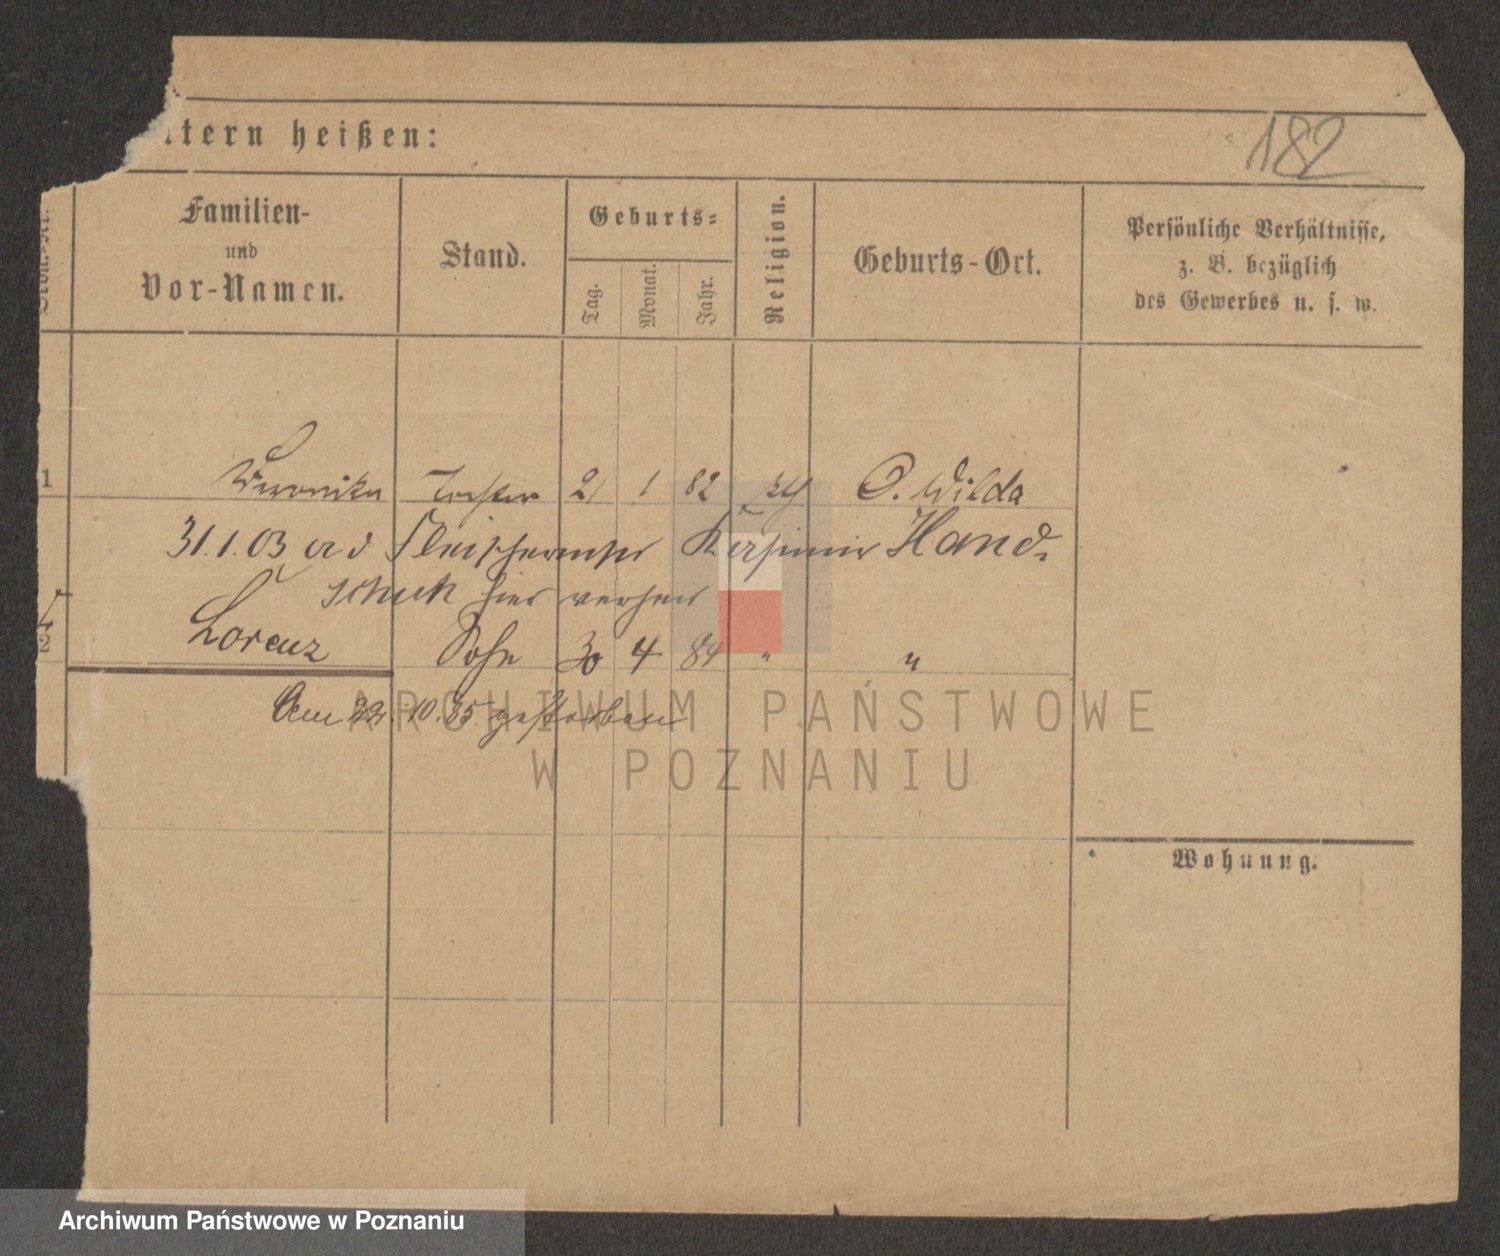 ltern heißen:
182
Familien-
und
Vor-Namen.
Stand.
Geburts-
Tag.
Monat.
Jahr.
Religion.
Geburts-Ort.
Persönliche Verhältnisse,
z. B. bezüglich
des Gewerbes u. s. w.
1 Veronika Tochter 21 1 82 kth O. Wilda
31.1.03 a d Fleischermstr Kasimir Hand-
schuck hier verheir
2 Lorenz Sohn 30 4 84 " "
Am 22.10.85 gestorben
Wohnung.
ARCHIWUM PAŃSTWOWE
W POZNANIU
Archiwum Państwowe w Poznaniu